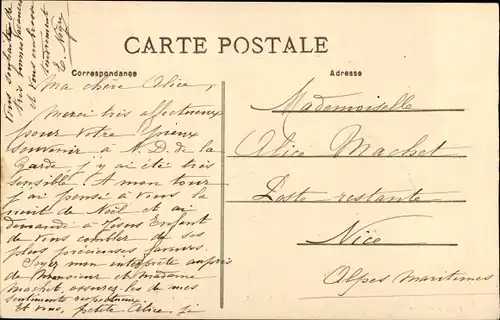 CARTE POSTALE
Correspondance
Adresse
Ma chère Alice,
Merci très affectueux
pour votre pieux
souvenir à N. D. de la
Garde, j'y ai été très
sensible. A mon tour
j'ai pensé à vous la
nuit de Noël et ai
demandé à Jésus Enfant
de vous combler de ses
plus précieuses faveurs.
Soyez mon interprète auprès
de Monsieur et Madame
Machet, assurez-les de mes
sentiments respectueux
Et vous, petite Alice, je
vous souhaite de
très bonnes vacances
et vous embrasse
tendrement
E.
Mademoiselle
Alice Machet
Poste restante
Nice
Alpes maritimes